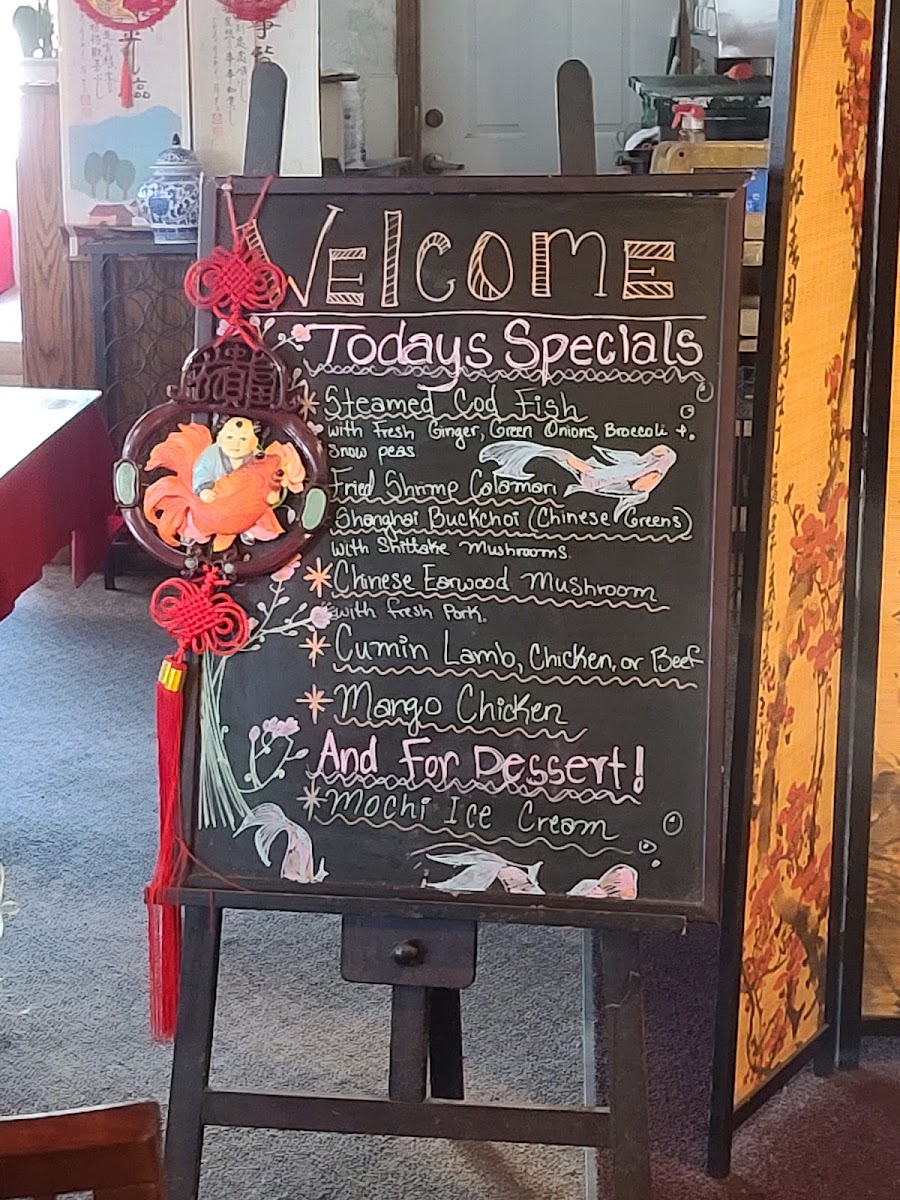 Welcome
Todays Specials
Steamed Cod Fish
with Fresh Ginger, Green Onions, Broccoli +
Snow peas
Fried Shrimp Calamari
Shanghai Buckchoi (Chinese Greens)
with Shittake Mushrooms.
Chinese Earwood Mushroom
with Fresh Pork.
Cumin Lamb, Chicken, or Beef
Mango Chicken
And For Dessert!
Mochi Ice Cream